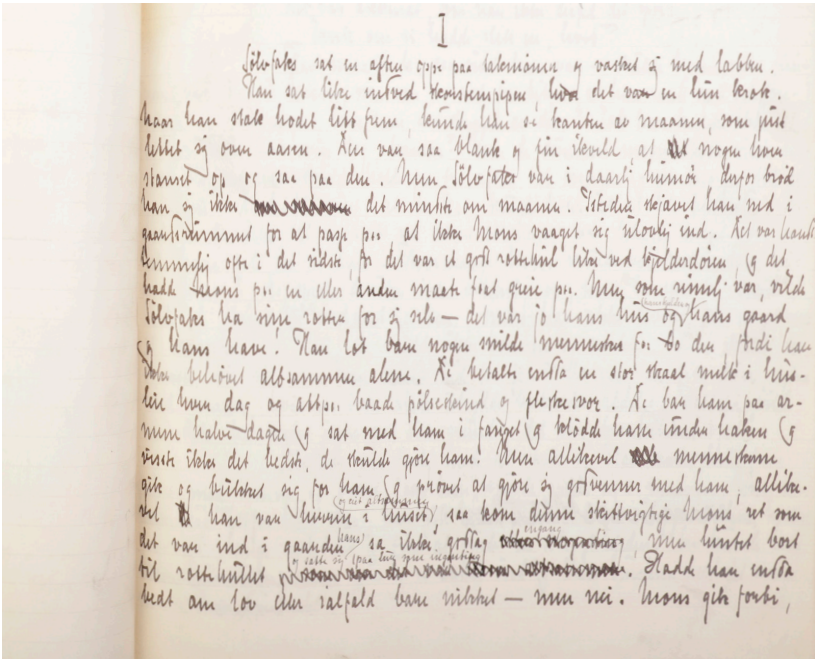 I
Sölvfaks sat en aften oppe paa takmönen og vasket sig med labben.
Han sat like indved skorstenspipen, det var en lun krok.
Naar han stak hodet litt frem, kunde han se kanten av maanen, som just
lettet sig over aasen. Den var saa blank og fin ikveld, at nogen hver
stanset op og saa paa den. Men Sölvfaks var i daarlig humör derfor bröd
han sig ikke det mindste om maanen. Isteden skjævet han ned i
gaardsrummet for at passe paa at ikke Mons vaaget sig ulovlig ind. Det var hendt
temmelig ofte i det sidste, for det var et godt rottehul like ved kjelderdören, og det
hadde Mons paa en eller anden maate faat greie paa. Men som rimelig var, vilde
Sölvfaks ha sine rotter for sig selv — det var jo hans hus og hans gaard
og hans have! Han lot bare nogen snilde mennesker faa bo der, fordi han
ikke behövet altsammen alene. De betalte endda en stor skaal melk i hus-
leie hver dag og attpaa baade pölseskind og fleskesvor. De bar ham paa ar-
mene halve dagen og sat med ham i fanget og klödde ham under haken og
visste ikke det bedste, de skulde gjöre ham. Men allikevel menneskene
gik og bukket sig for ham og prövet at gjöre sig godvenner med ham, allike-
vel han var herren i huset (og eiet altsammen), saa kom denne skittviktige Mons, ret som
det var ind i gaarden (hans) sa ikke goddag engang, men luntet bort
til rottehullet og satte sig paa lur som ingenting. Hadde han endda
bedt om lov eller ialfald bare nikket — men nei. Mons gik forbi,